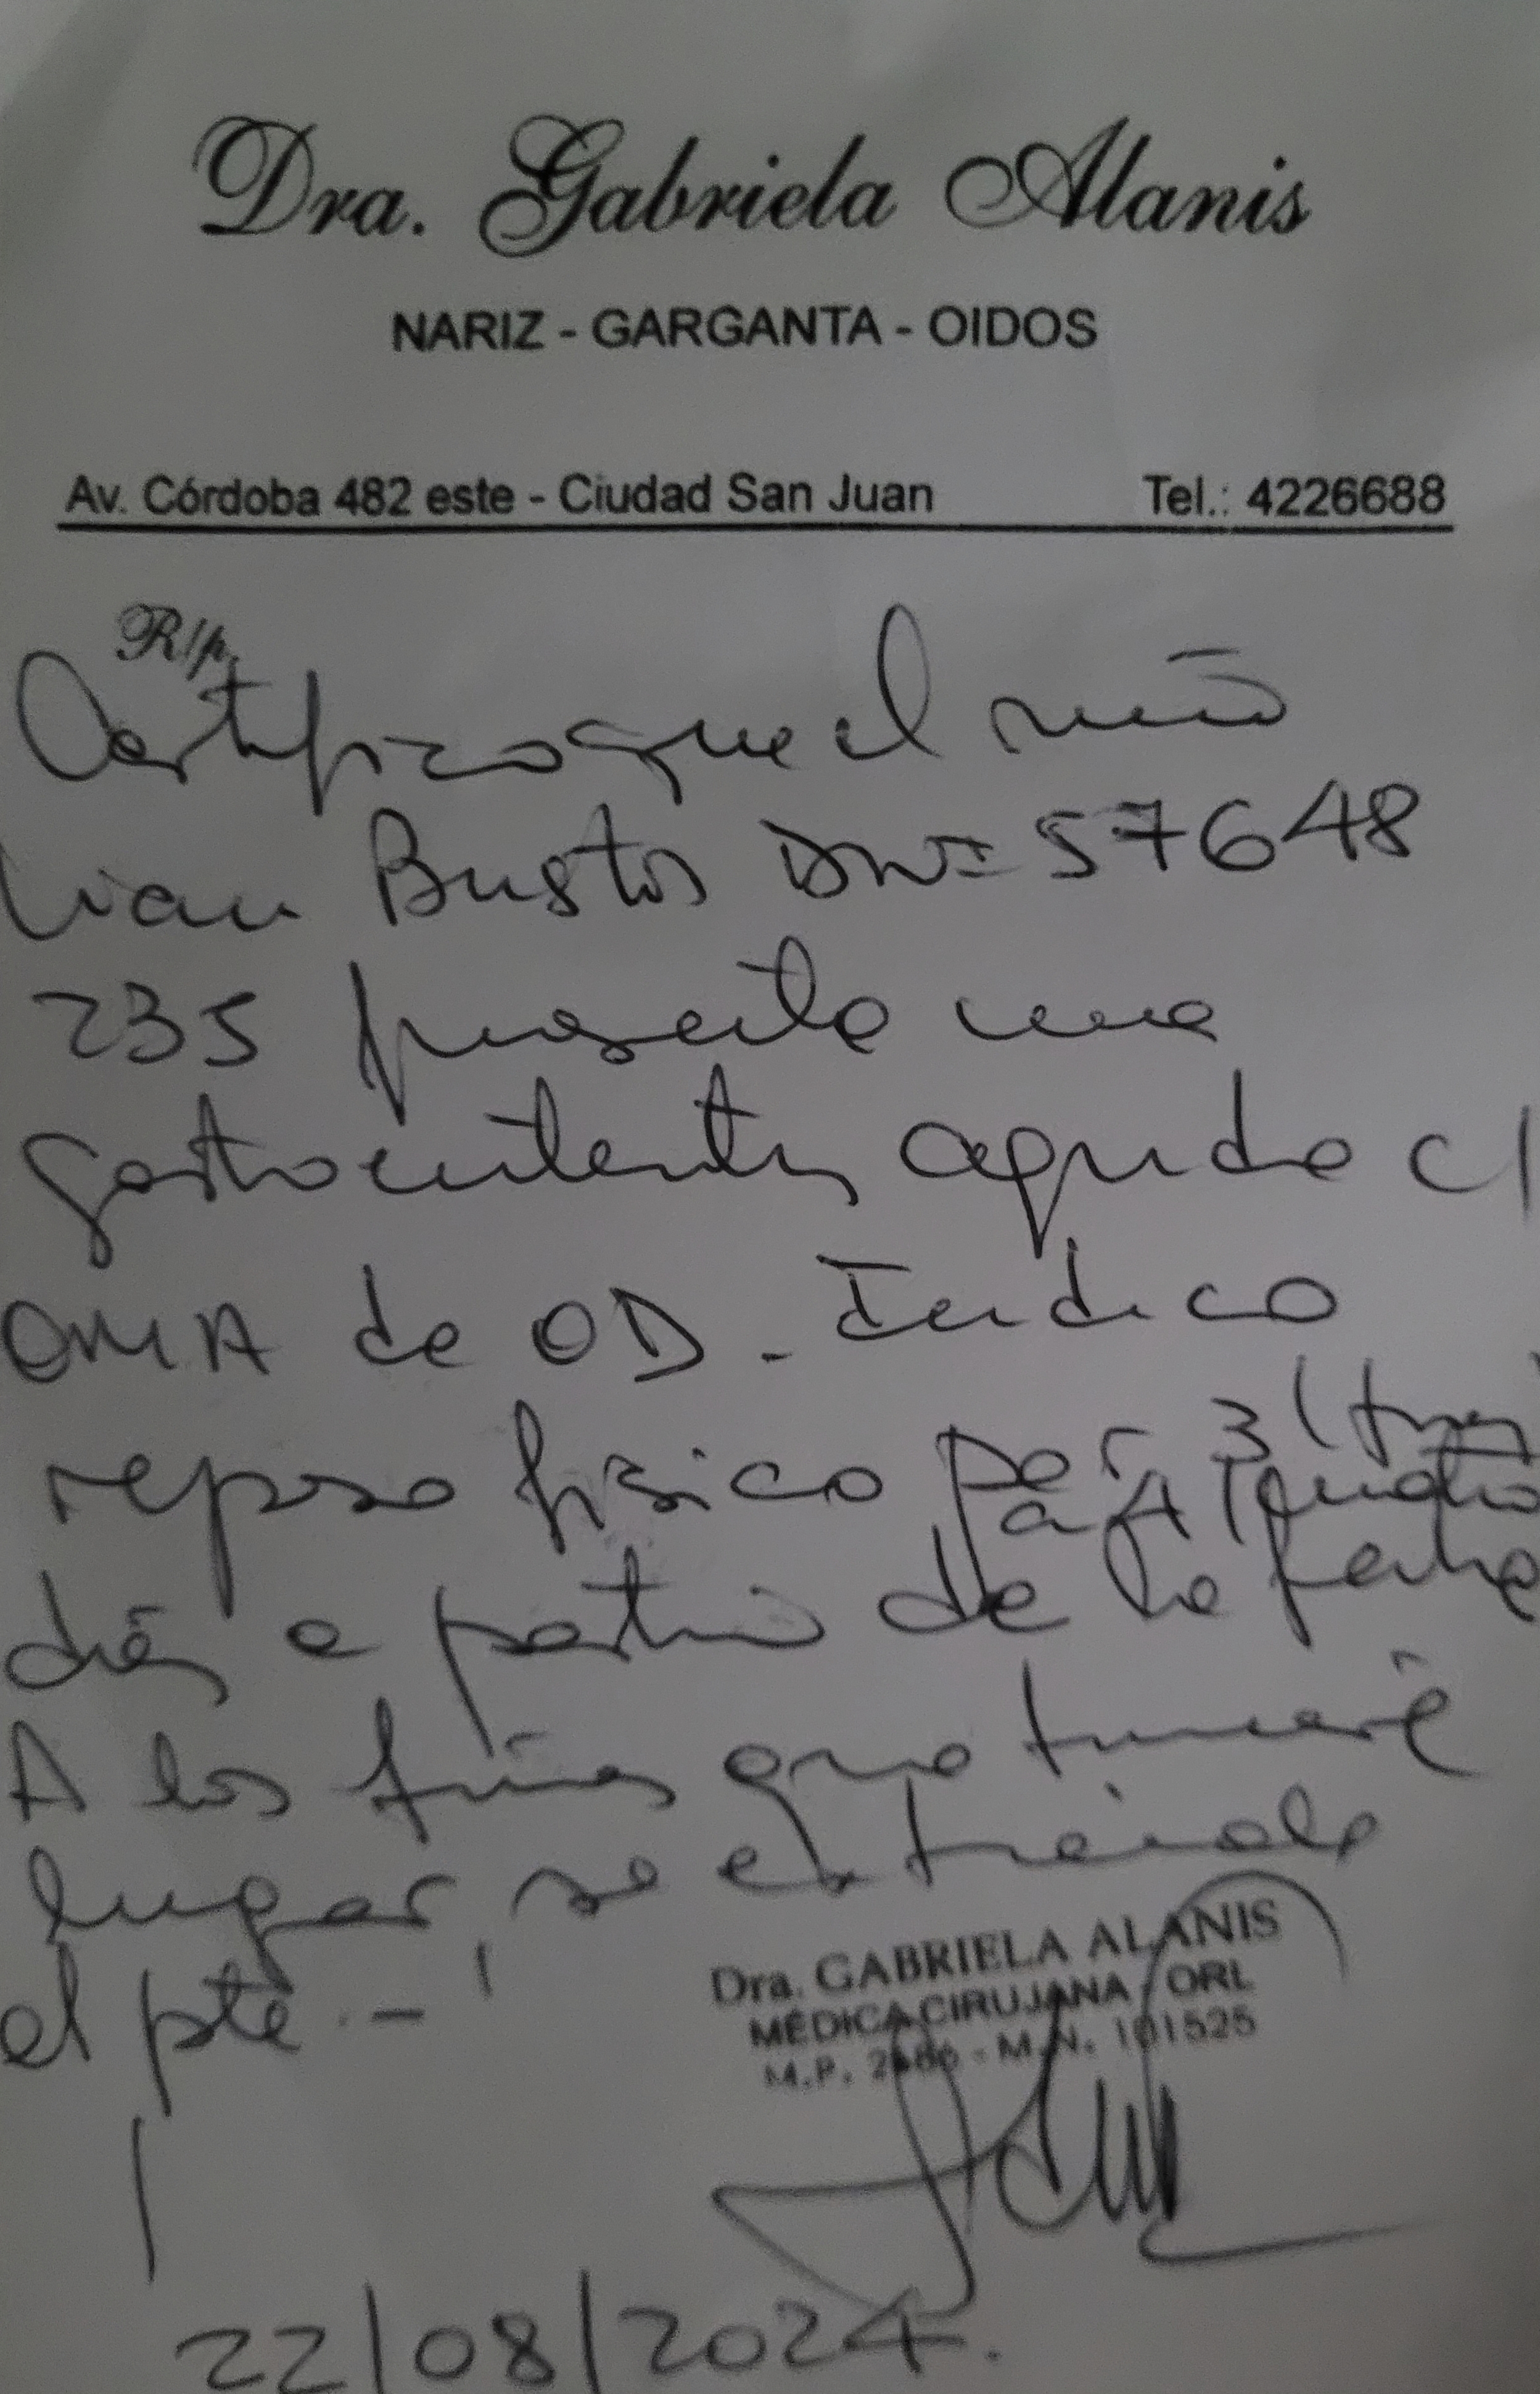 Dra. Gabriela Alanis
NARIZ - GARGANTA - OIDOS
Av. Córdoba 482 este - Ciudad San Juan Tel.: 4226688
R/p.
Certifico que el niño
Bustos DNI= 57648
235 presenta una
gastroenteritis aguda c/
OMA de OD - Indico
reposo físico por 3 (tres
a 4 (cuatro
días a partir de la fecha
A los fines que tuviere
lugar, se extiende
el pte. -
Dra. GABRIELA ALANIS
MÉDICA CIRUJANA / ORL
M.P. - M.N. 101525
22/08/2024.